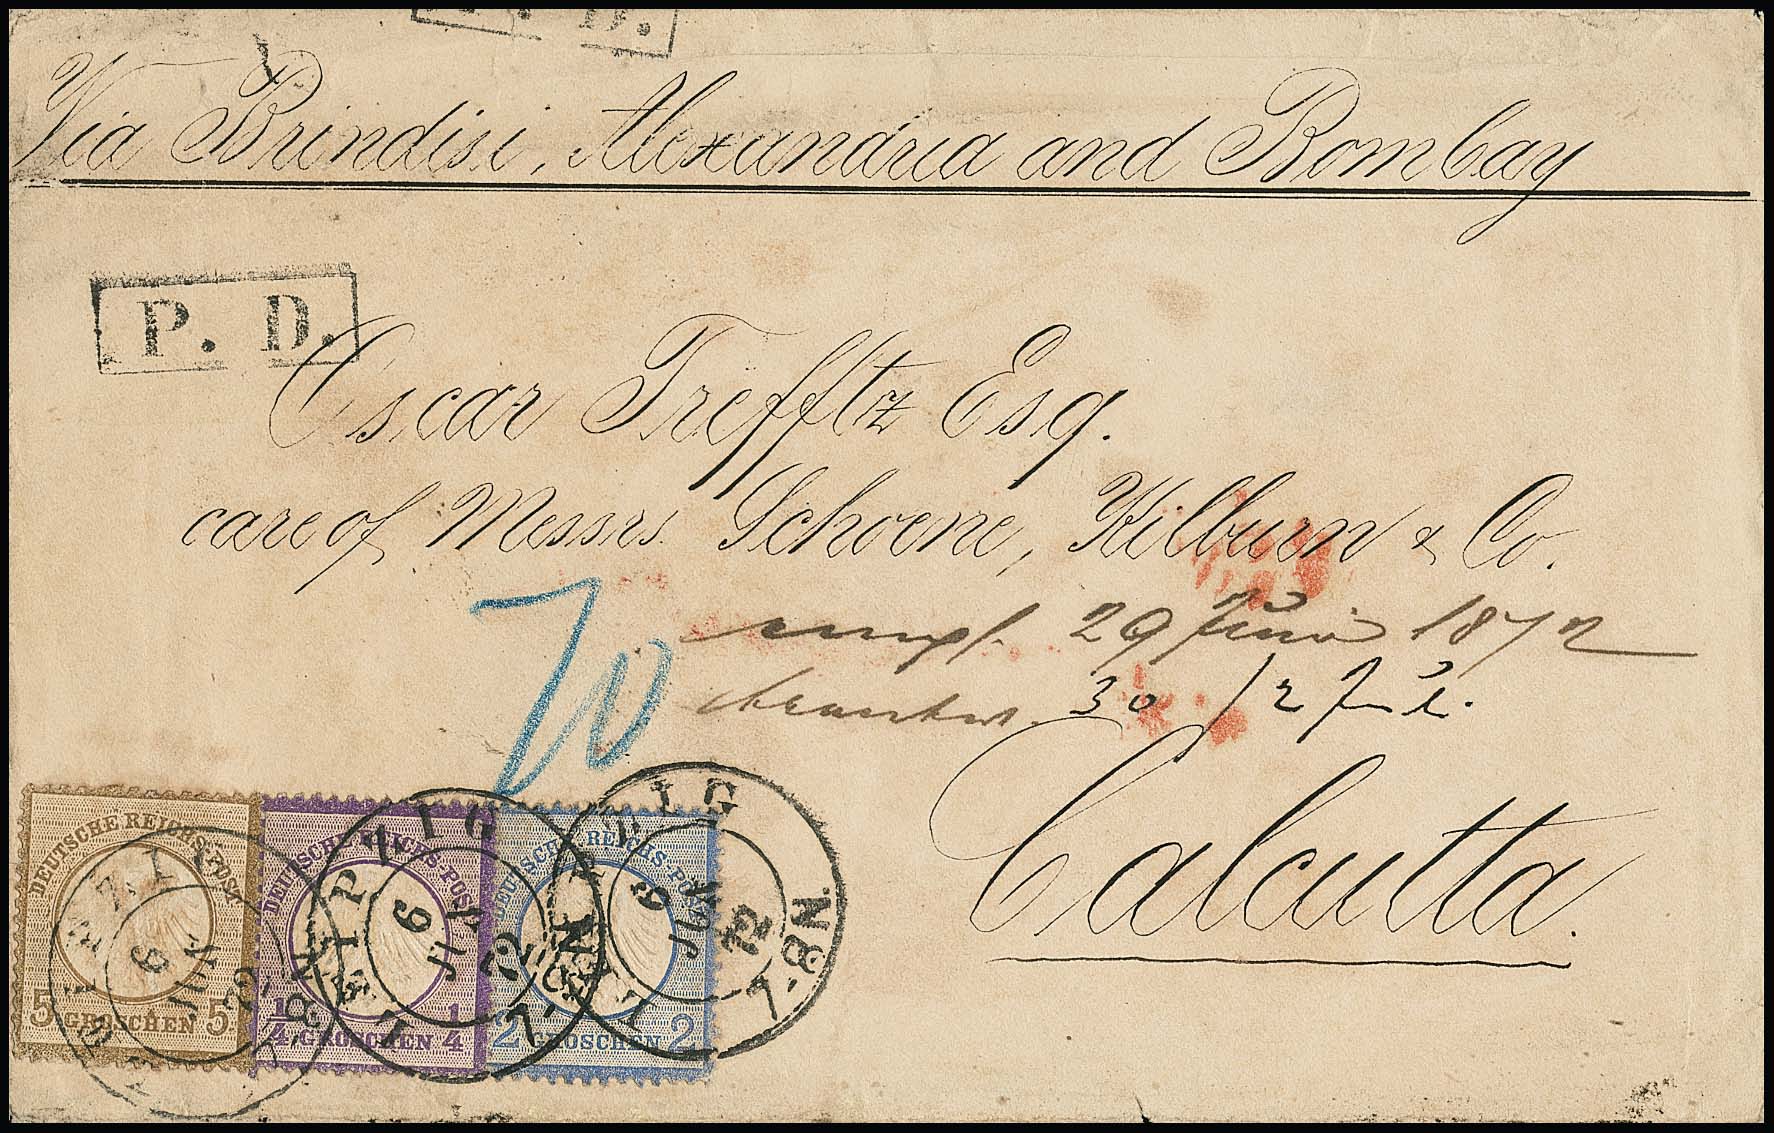 P. D.
Via Brindisi, Alexandria and Bombay
P. D.
Oscar Trefftz Esq.
care of Messrs. Schoene, Kilburn & Co.
70
empf. 29 Juni 1872
beantw. 30 / 2 Juli.
Calcutta.
DEUTSCHE REICHS-POST
5 GROSCHEN 5
DEUTSCHE REICHS-POST
1/4 GROSCHEN 1/4
DEUTSCHE REICHS-POST
2 GROSCHEN 2
LEIPZIG
6 JUN 72
7-8N.
LEIPZIG
6 JUN 72
7-8N.
LEIPZIG
6 JUN 72
7-8N.